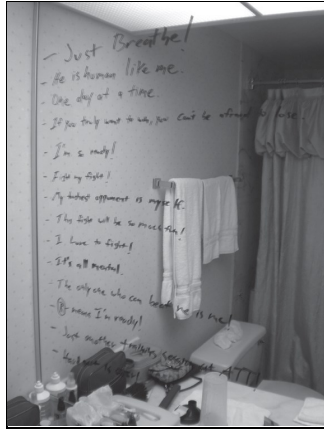 - Just Breathe!
- He is human like me.
- One day at a time.
- If you truly want to win, you can't be afraid to lose.
- I'm so ready!
- Fight my fight!
- My opponent is myself.
- This fight will be so much fun!
- I love to fight!
- It's all mental.
- The only one who can beat me is me!
- means I'm ready!
- Just another